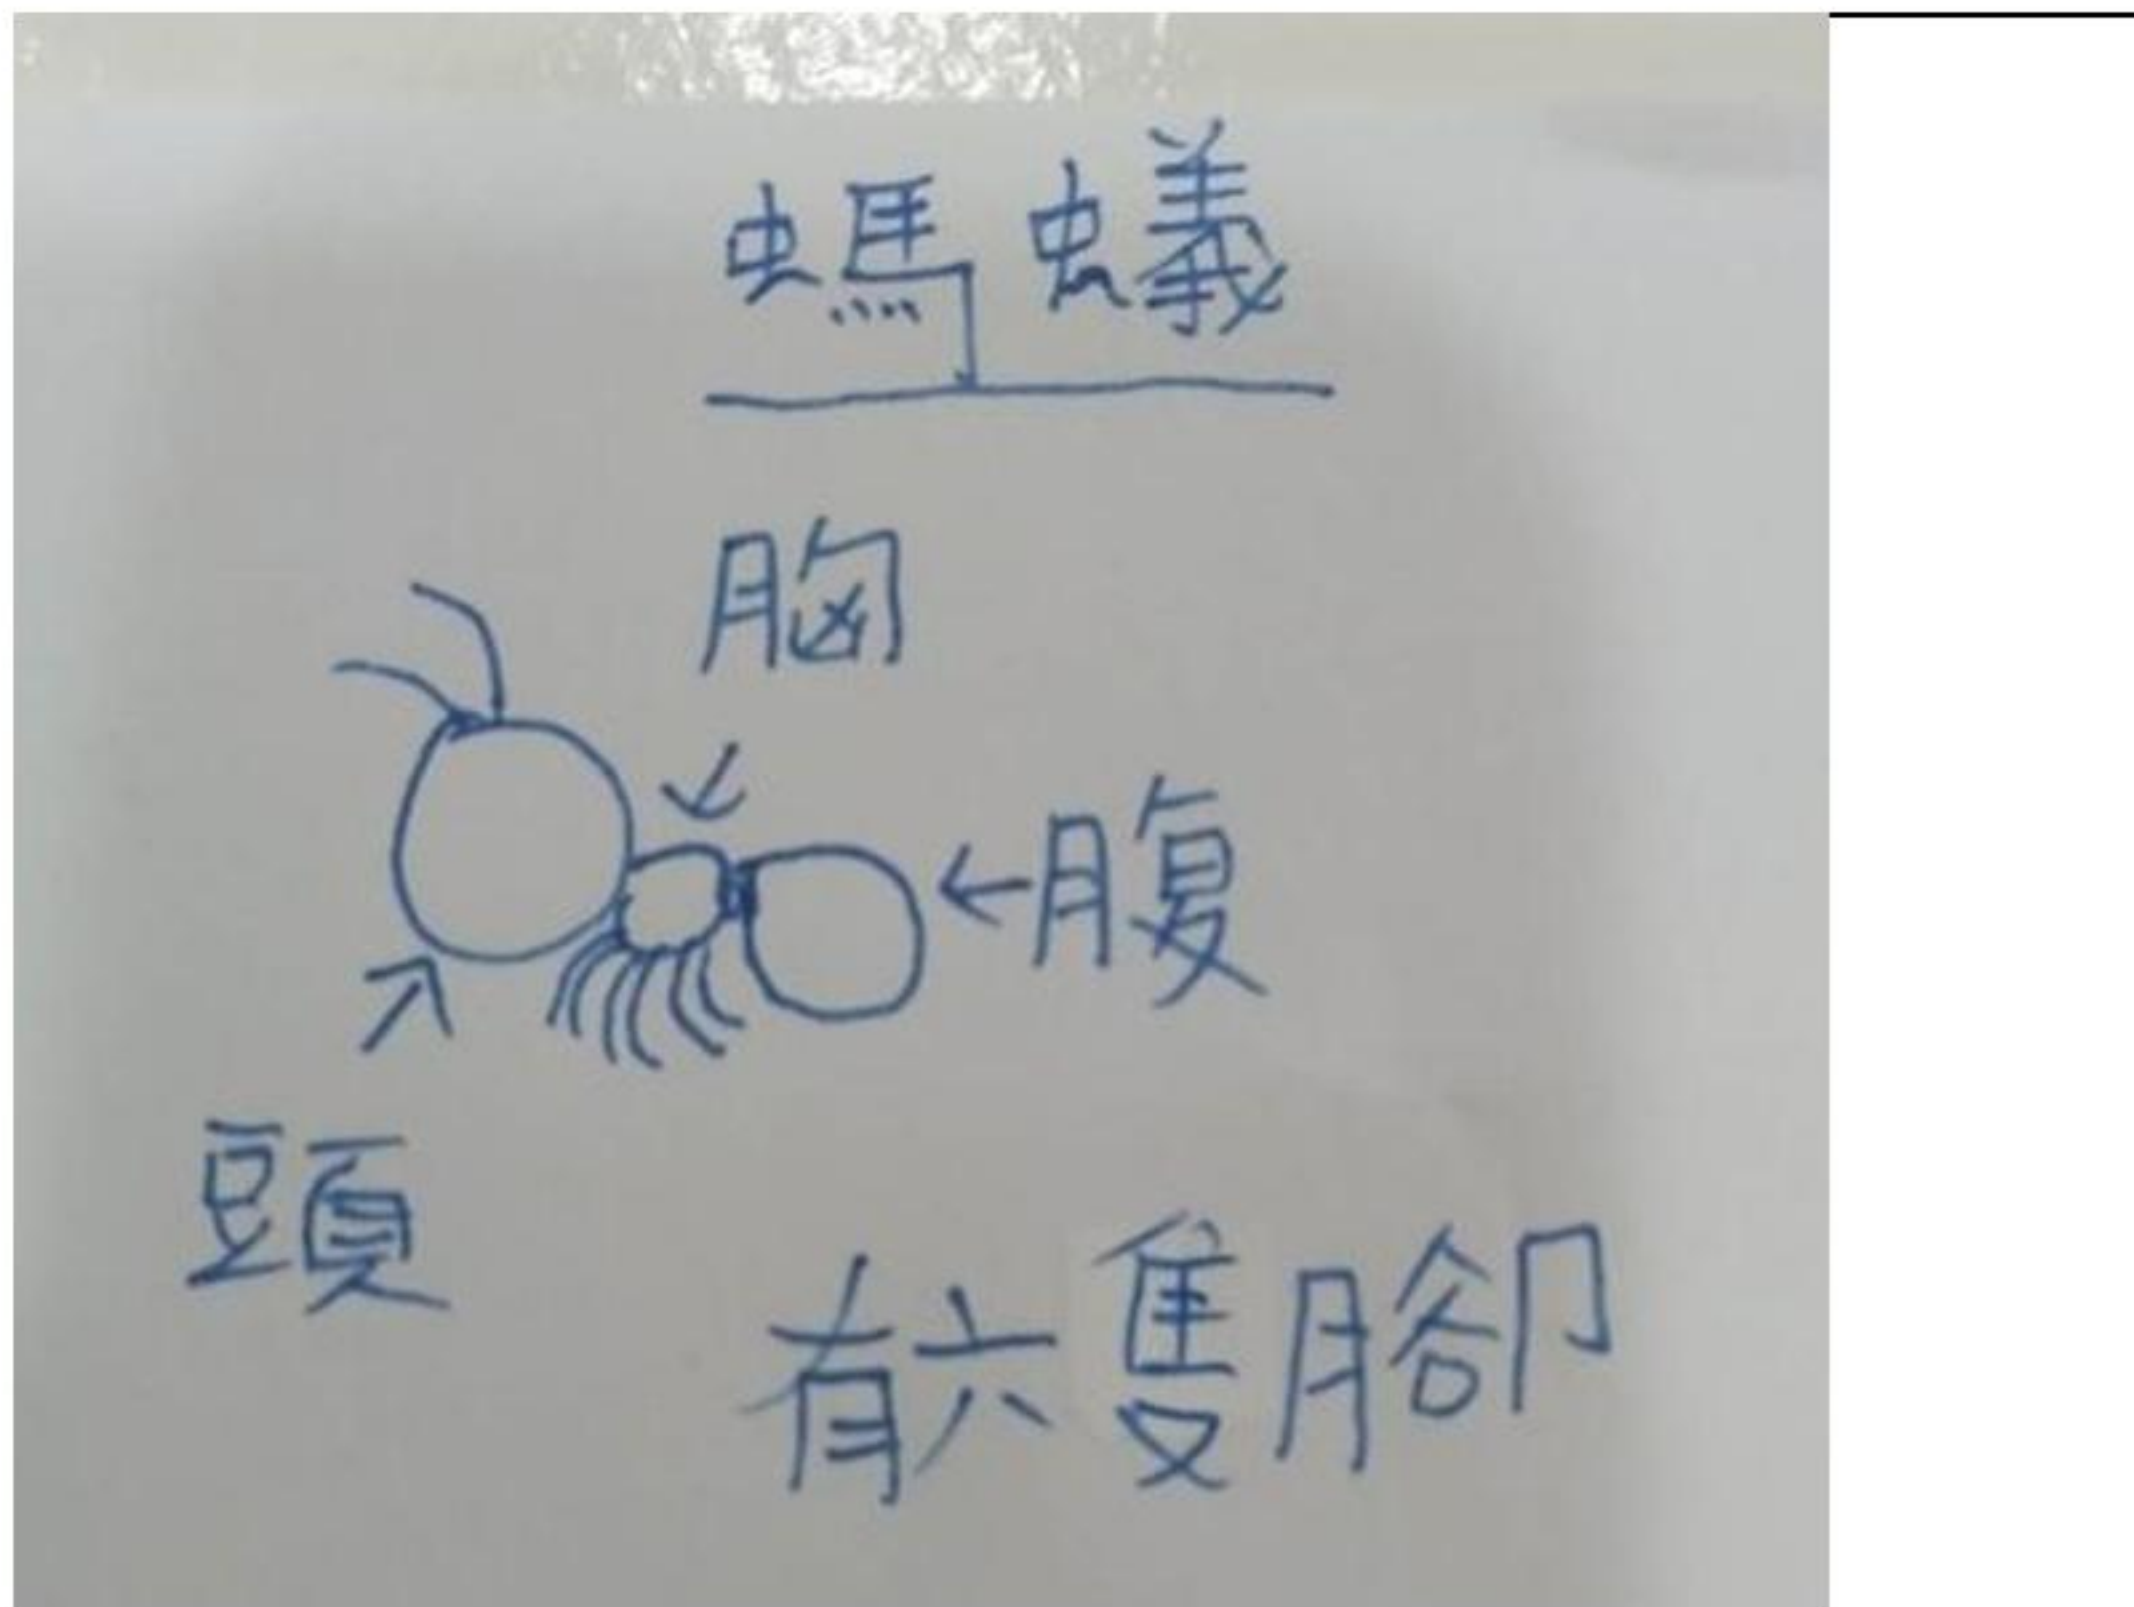 螞蟻
胸
腹
頭
有六隻腳